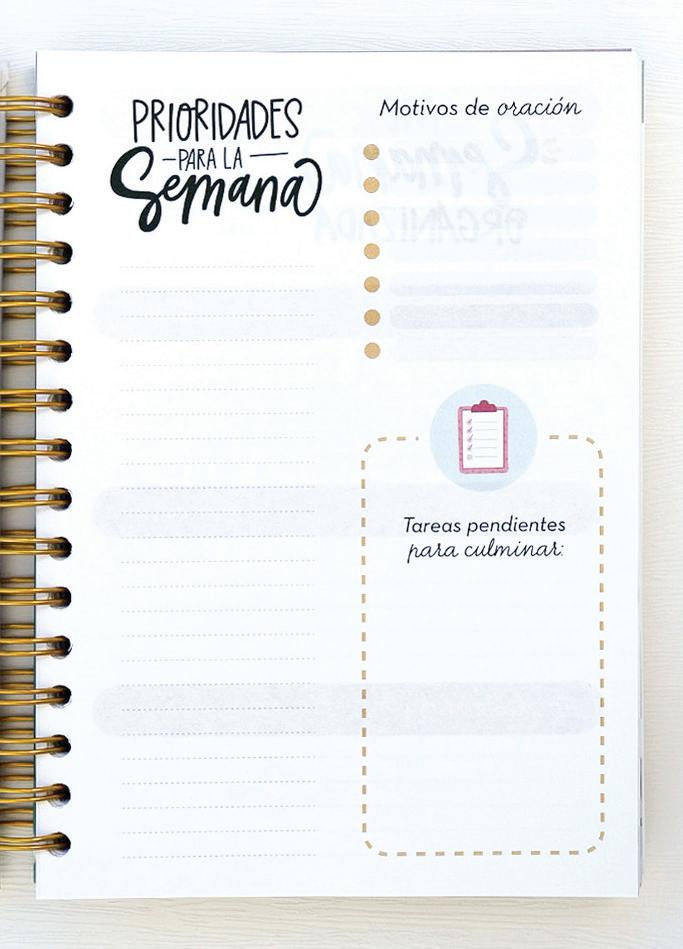 PRIORIDADES
PARA LA
Semana
Motivos de oración
Tareas pendientes
para culminar: